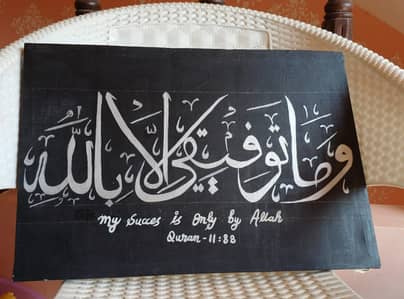 وَمَا تَوْفِيقِي إِلَّا بِاللَّهِ
my Succes is only by Allah
Quran - 11:88